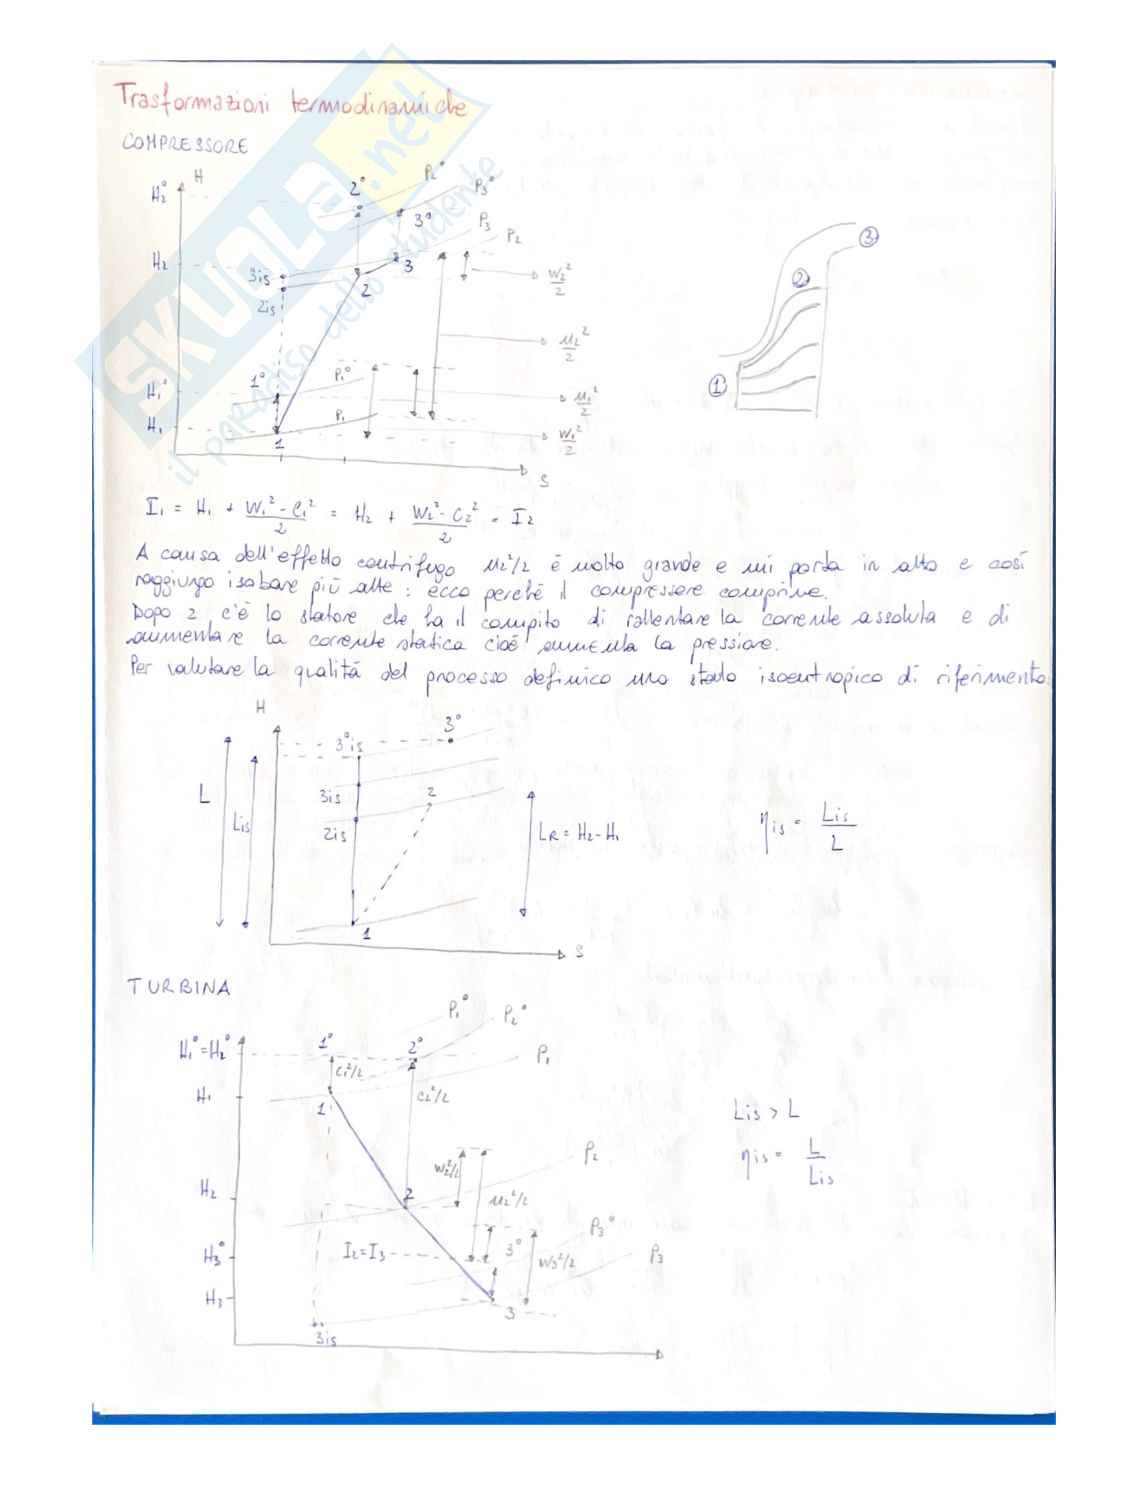 Trasformazioni termodinamiche
COMPRESSORE
H
H₂°
2°
P₂°
P₃°
3°
P₃
P₂
H₂
3is
3
2
2is
W₂²/2
u₂²/2
③
②
①
1°
P₁°
H₁°
u₁²/2
P₁
H₁
1
W₁²/2
S
I₁ = H₁ + (W₁² - C₁²)/2 = H₂ + (W₂² - C₂²)/2 = I₂
A causa dell'effetto centrifugo u₂²/2 è molto grande e mi porta in alto e così
raggiungo isobare più alte: ecco perché il compressore comprime.
Dopo 2 c'è lo statore che ha il compito di rallentare la corrente assoluta e di
aumentare la corrente statica cioè aumenta la pressione.
Per valutare la qualità del processo definisco uno stato isoentropico di riferimento:
H
3°
3°is
L
Lis
3is
2
2is
LR = H₂ - H₁
ηis = Lis/L
1
S
TURBINA
P₁°
P₂°
H₁° = H₂°
1°
2°
P₁
C₁²/2
C₂²/2
H₁
1
Lis > L
ηis = L/Lis
P₂
W₂²/2
u₂²/2
H₂
2
P₃°
I₂ = I₃
3°
W₃²/2
P₃
H₃°
H₃
3
3is
SKUOLA.net
il paradiso dello studente